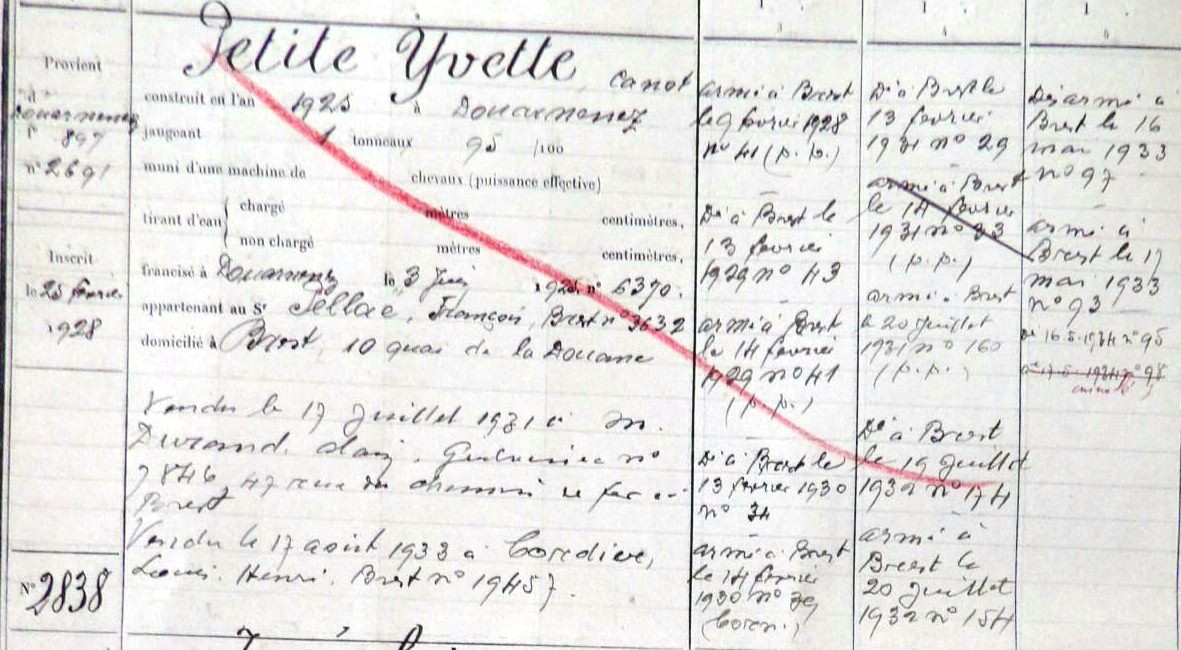 Provient
d
Douarnenez
f° 897
n° 2691
Inscrit
le 25 février
1928
N° 2838
Petite Yvette, canot
construit en l'an 1925 à Douarnenez
jaugeant 1 tonneaux 95 /100
muni d'une machine de chevaux (puissance effective)
tirant d'eau { chargé mètres centimètres,
non chargé mètres centimètres,
francisé à Douarnenez le 3 Juin 1925, n° 6370.
appartenant au Sr Sellac, François, Brest n° 3632
domicilié à Brest, 10 quai de la Douane
Vendu le 17 Juillet 1931 à M.
Durand, Alain, n°
7846, 47 rue du chemin de fer
Brest
Vendu le 17 août 1933 à Corvdive,
Louis, Henri, Brest n° 19457.
3
armé à Brest
le 9 février 1928
n° 41 (p.p.)
Dé à Brest le
13 février
1929 n° 43
armé à Brest
le 14 février
1929 n° 41
(p.p.)
Dé à Brest le
13 février 1930
n° 34
armé à Brest
le 14 février
1930 n° 39
4
Dé à Brest le
13 février
1931 n° 29
armé à Brest
le 14 février
1931 n° 33
(p.p.)
armé à Brest
le 20 juillet
1931 n° 160
(p.p.)
Dé à Brest
le 19 Juillet
1932 n° 174
armé à
Brest le
20 Juillet
1932 n° 154
Désarmé à
Brest le 16
mai 1933
n° 97
armé à
Brest le 17
mai 1933
n° 93
Dé 16-5-1934 n° 95
17-5-1934 n° 98